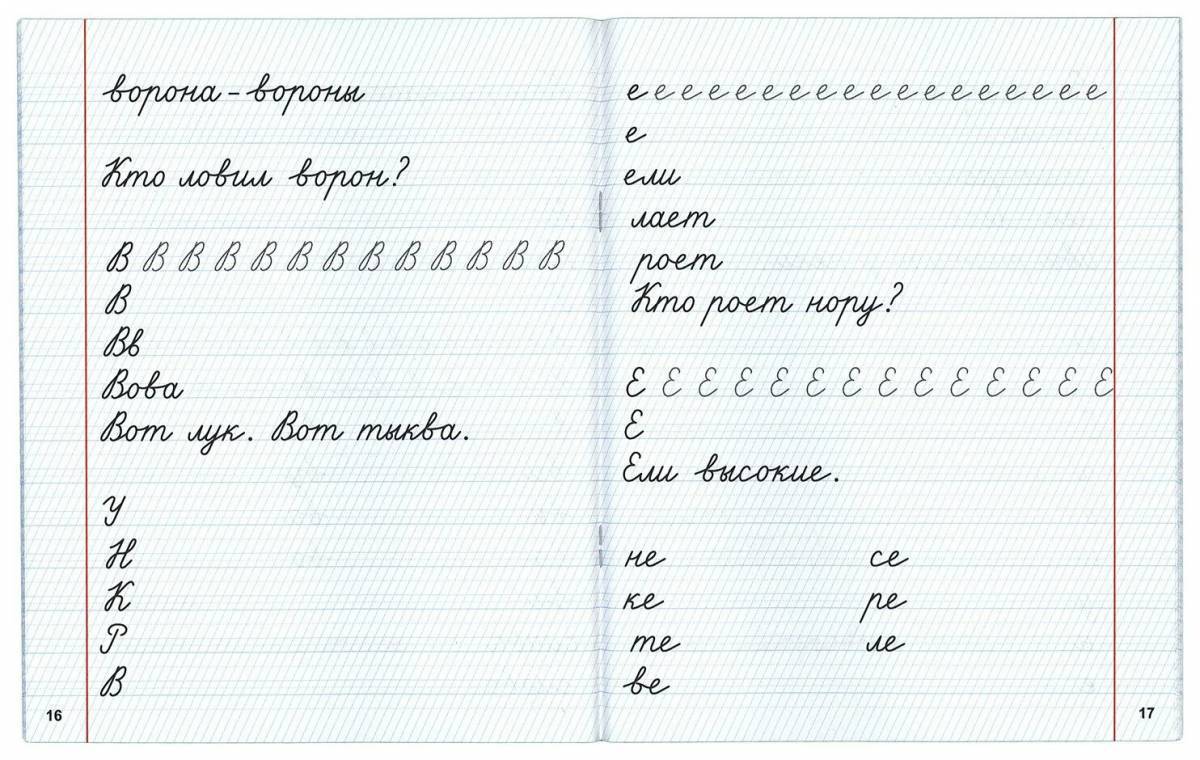 ворона - вороны
Кто ловил ворон?
В В В В В В В В В В В В В
В
Вв
Вова
Вот лук. Вот тыква.
У
Н
К
Р
В
16
е е е е е е е е е е е е е е е е е е
е
ели
лает
роет
Кто роет нору?
Е Е Е Е Е Е Е Е Е Е Е Е Е Е
Е
Ели высокие.
не се
ке ре
те ле
ве
17